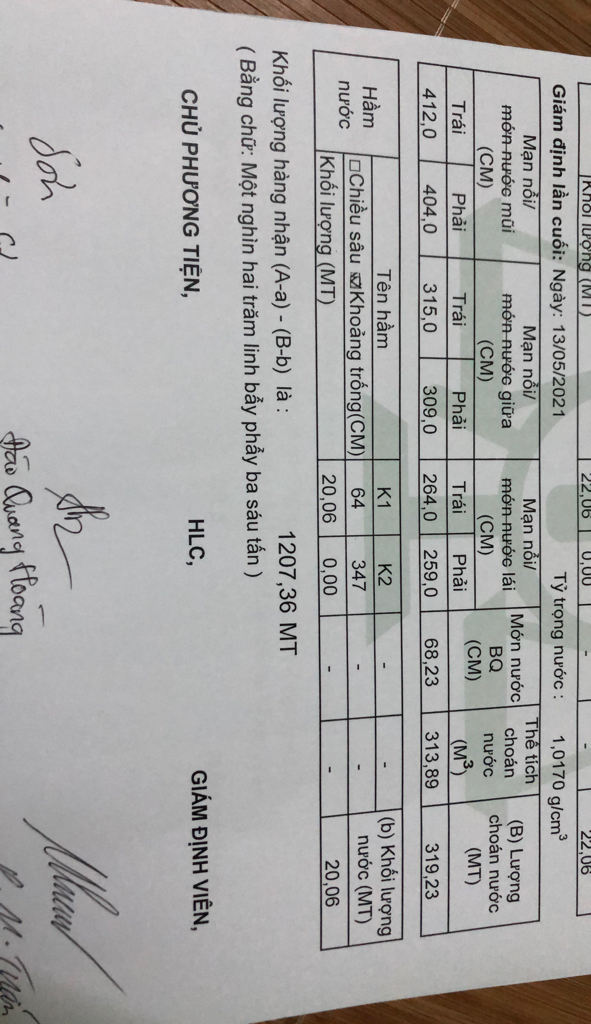 Khối lượng (MT) 22,06 0,00 - - 22,06
Giám định lần cuối: Ngày: 13/05/2021 Tỷ trọng nước : 1,0170 g/cm³
Mạn nổi/ Mạn nổi/ Mạn nổi/ Mớn nước Thể tích (B) Lượng
mớn nước mũi mớn nước giữa mớn nước lái BQ choán choán nước
(CM) (CM) (CM) (CM) nước (MT)
Trái Phải Trái Phải Trái Phải (M³)
412,0 404,0 315,0 309,0 264,0 259,0 68,23 313,89 319,23
Hầm Tên hầm K1 K2 - - (b) Khối lượng
nước □Chiều sâu ☑Khoảng trống(CM) 64 347 - - nước (MT)
Khối lượng (MT) 20,06 0,00 - - 20,06
Khối lượng hàng nhận (A-a) - (B-b) là : 1207,36 MT
( Bằng chữ: Một nghìn hai trăm linh bẩy phẩy ba sáu tấn )
CHỦ PHƯƠNG TIỆN, HLC, GIÁM ĐỊNH VIÊN,
Đào Quang Hoàng